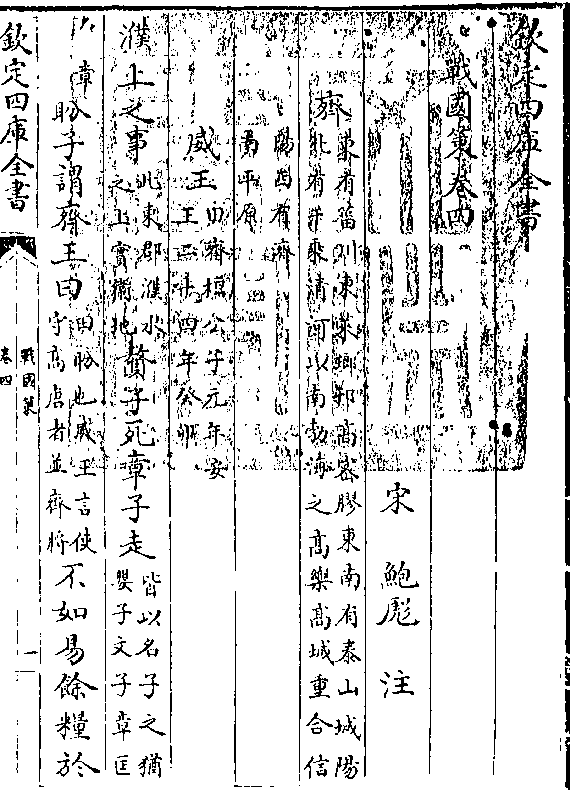 欽定四庫全書
戰國策卷四
宋 鮑彪 注
齊
東有菑川東萊琅邪高密膠東南有泰山城陽
北有千乘清河以南勃海之高樂高城重合信
陽西有濟
南平原
威王
田齊桓公子元年安
王二十四年癸卯
濮上之事
此東郡濮水
之上實衛地
贅子死章子走
皆以名子之猶
嬰子文子章匡
章
盼子謂齊王曰
田盼也威王言使
守高唐者並齊將
不如易餘糧於
欽定四庫全書
戰國策
卷四
一